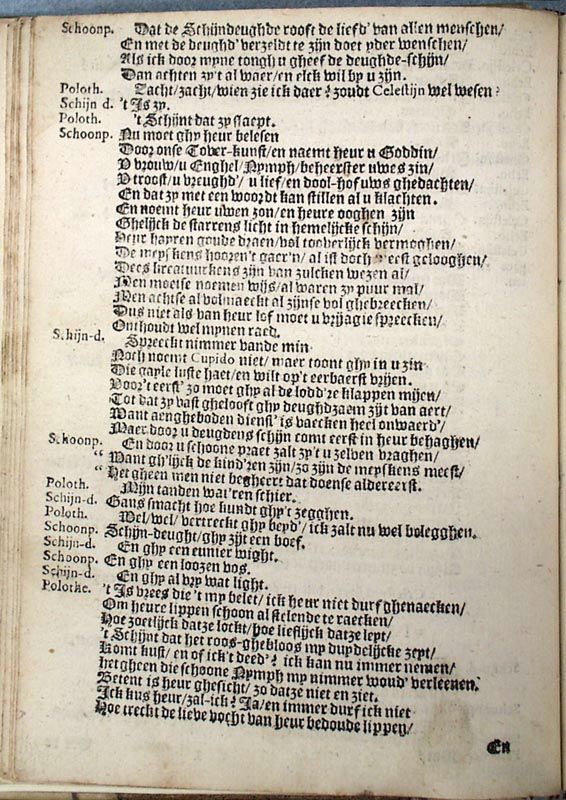 Schoonp. Dat de Schijndeughde rooft de liefd' van allen menschen/
En met de deughd' verzeldt te zijn doet yder wenschen/
Als ick door myne tongh u gheef de deughde-schijn/
Dan achten zy't al waer/en elck wil by u zijn.
Poloth. Zacht/zacht/wien zie ick daer? zoudt Celestijn wel wesen?
Schijn d. 't Is zy.
Poloth. 't Schijnt dat zy slaept.
Schoonp. Nu moet ghy heur belesen
Door onse Tover-kunst/en naemt heur u Goddin/
U vrouw/u Enghel/Nymph/beheerster uwes zin/
U troost/u vreughd'/u lief/en dool-hof uws ghedachten/
En dat zy met een woordt kan stillen al u klachten.
En noemt heur uwen zon/en heure ooghen zijn
Ghelijck de starrens licht in hemelijcke schijn/
Heur hayren goude draen/vol tooverlijck vermoghen/
De meyskens hooren't gaer'n/al ist doch meest gelooghen/
Dees kreatuurkens zijn van zulcken wezen al/
Men moetse noemen wijs/al waren zy puur mal/
Men achtse al volmaeckt al zijnse vol ghebreecken/
Dus niet als van heur lof moet u vryagie spreecken/
Onthoudt wel mynen raed.
Schijn-d. Spreeckt nimmer vande min
Noch noemt Cupido niet/maer toont ghy in u zin
Die gayle luste haet/en wilt op't eerbaerst vrijen.
Voor't eerst' zo moet ghy al de lodd're klappen mijen/
Tot dat zy vast ghelooft ghy deughdzaem zijt van aert/
Want aengheboden dienst' is vaecken heel onwaerd'/
Maer door u deugdens schijn comt eerst in heur behaghen/
Schoonp. En door u schoone praet zalt zy't u zelven vraghen/
“ Want gh'lijck de kind'ren zijn/zo zijn de meyskens meest/
“ Het gheen men niet begheert dat doense aldereerst.
Poloth. Mijn tanden wat'ren schier.
Schijn-d. Gans smacht hoe kundt ghy't zegghen.
Poloth. Wel/wel/vertreckt ghy beyd'/ick zalt nu wel belegghen.
Schoonp. Schijn-deught/ghy zijt een boef.
Schijn-d. En ghy een eunier wight.
Schoonp. En ghy een loozen vos.
Schijn-d. En ghy al vry wat light.
Polothe. 't Is vrees die 't my belet/ick heur niet durf ghenaecken/
Om heure lippen schoon al stelende te raecken/
Hoe zoetlijck datze lockt/hoe lieflijck datze lept/
't Schijnt dat het roos-ghebloos my duydelijcke zept/
Komt kust/en of ick't deed'? ick kan nu immer nemen/
het gheen die schoone Nymph my nimmer woud' verleenen.
Betent is heur ghesicht/zo datze niet en ziet.
Ick kus heur/zal-ick? Ja/en immer durf ick niet
Hoe treckt de lieve vocht van heur bedoude lippen/
En